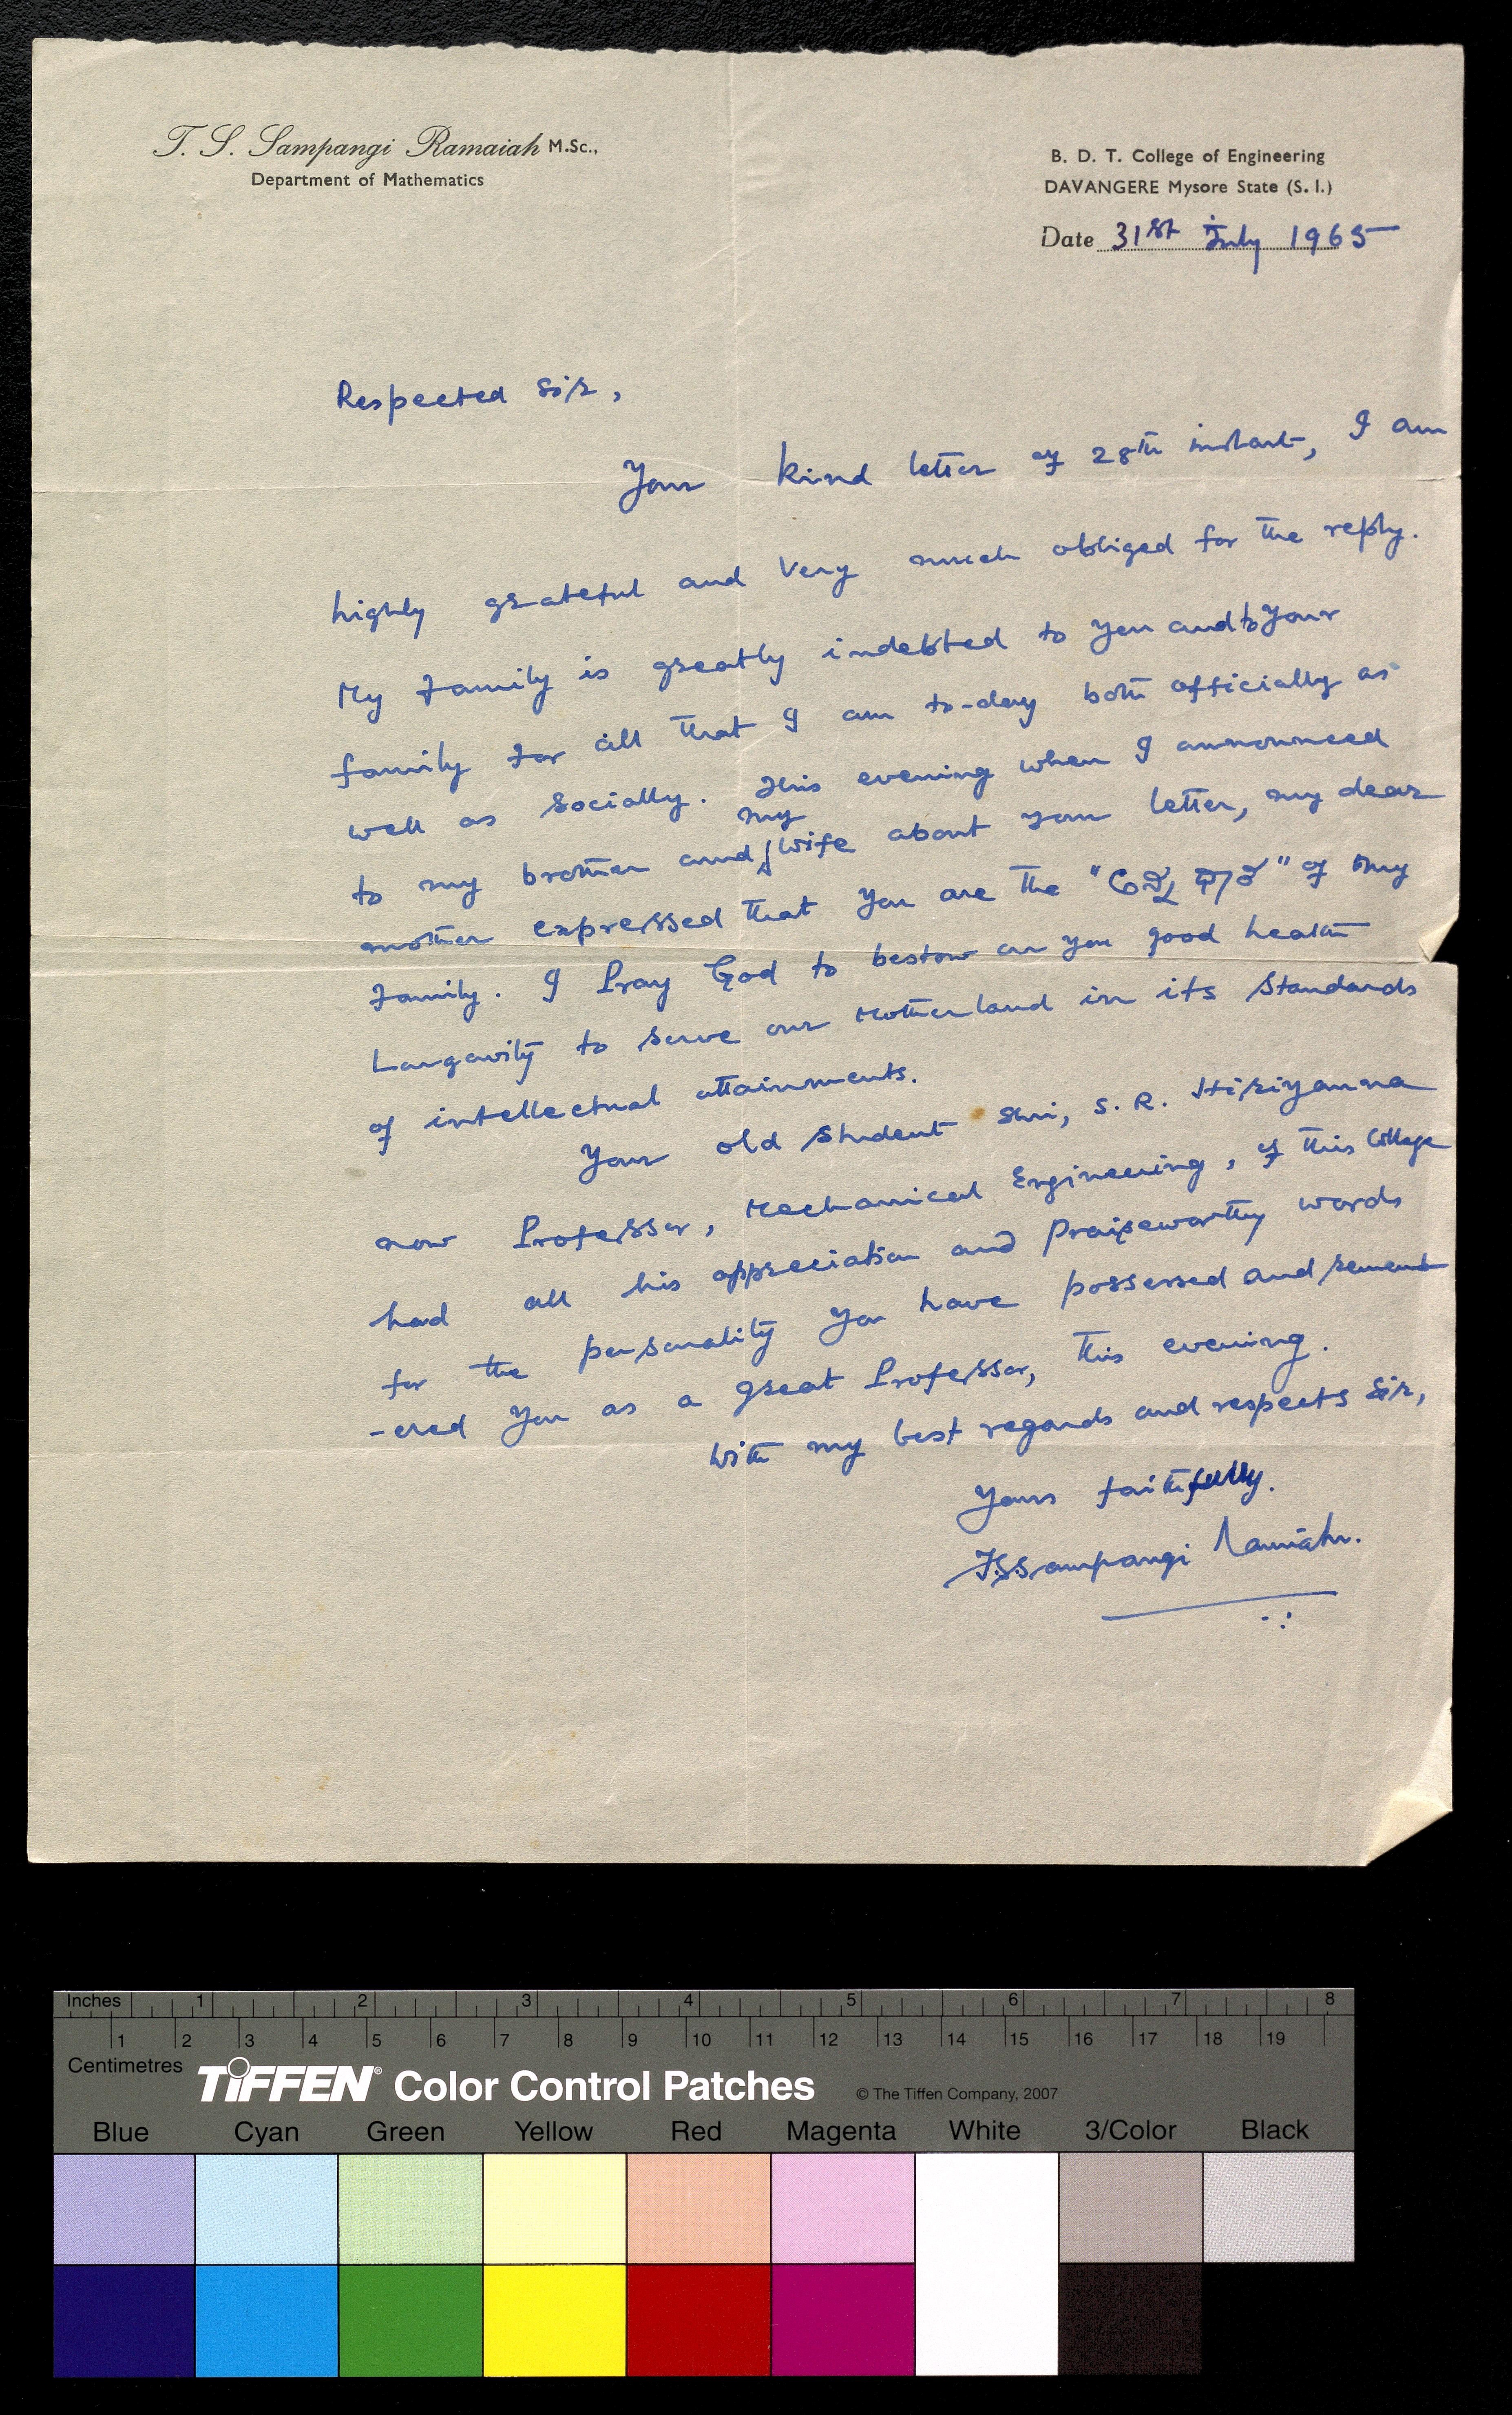 T. S. Sampangi Ramaiah M.Sc.,
Department of Mathematics
B. D. T. College of Engineering
DAVANGERE Mysore State (S. I.)
Date 31st July 1965
Respected Sir,
Your kind letter of 28th instant, I am
highly grateful and very much obliged for the reply.
My Family is greatly indebted to you and to your
family for all that I am to-day both officially as
well as socially. This evening when I announced
to my brother and my wife about your letter, my dear
mother expressed that you are the " " of my
Family. I Pray God to bestow on you good health
Longavity to serve our Motherland in its Standards
of intellectual attainments.
Your old student Shri, S. R. Hiriyanna
now Professor, Mechanical Engineering, of this College
had all his appreciation and Praiseworthy words
for the personality you have possessed and rememb
-ered you as a great Professor, this evening.
With my best regards and respects Sir,
Yours faithfully.
T.S.Sampangi Ramaiah.
Inches 1 2 3 4 5 6 7 8
1 2 3 4 5 6 7 8 9 10 11 12 13 14 15 16 17 18 19
Centimetres
TIFFEN® Color Control Patches © The Tiffen Company, 2007
Blue Cyan Green Yellow Red Magenta White 3/Color Black